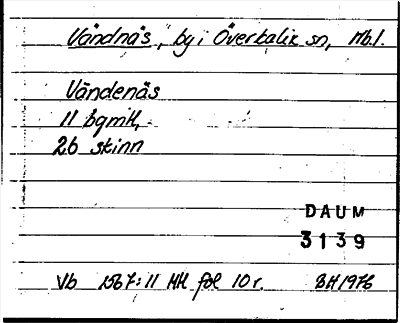 Vändnäs, by i Överkalix sn, Nb.l.
Vändenäs
11 bgmtl,
26 skinn
DAUM
3139
Vb 1567:11 MH fol 10 r. BH 1976